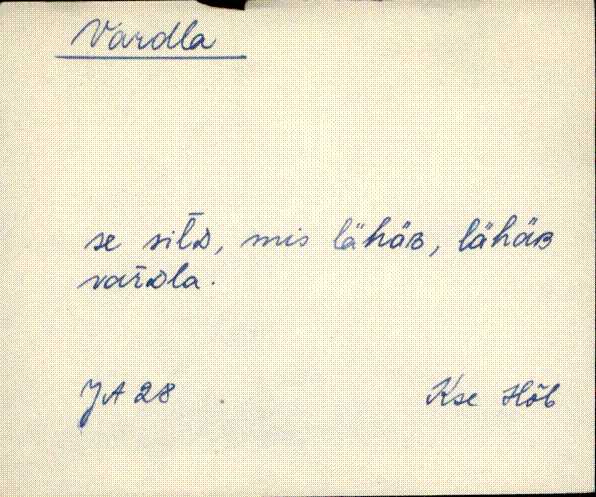 Vardla
se sil̄ᴅ, mis lähäʙ, lähäʙ
var̆ᴅla.
JA 28
Kse Hõb